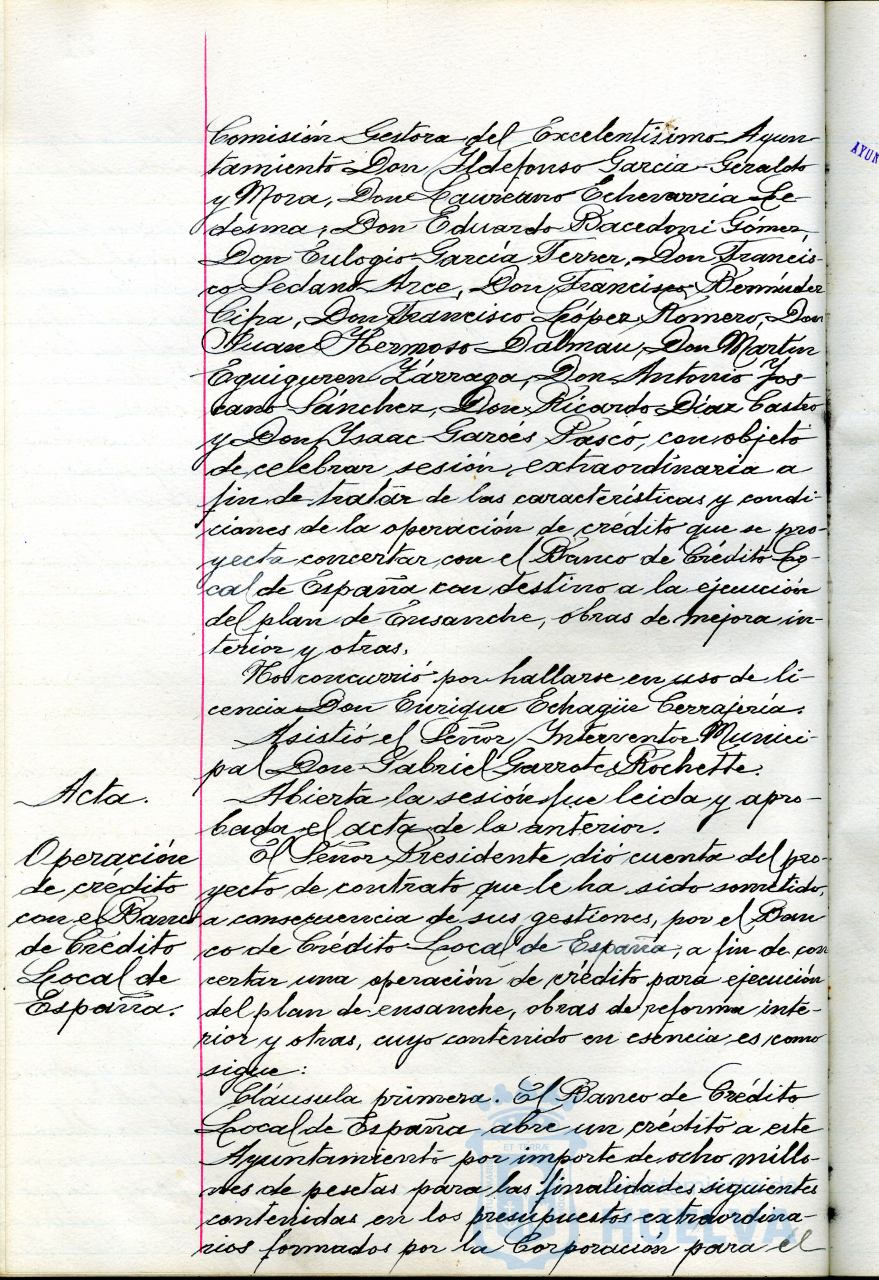 Comisión Gestora del Excelentísimo Ayun-
tamiento Don Ildefonso García Geraldo
y Mora, Don Laureano Echevarría Le-
desma, Don Eduardo Bacedoni Gómez,
Don Eulogio García Ferrer, Don Francis-
co Sedano Arce, Don Francisco Bermúdez
Cifra, Don Francisco López Romero, Don
Juan Hermoso Dalmau, Don Martín
Eguiguren Zárraga, Don Antonio Jos-
cano Sánchez, Don Ricardo Díaz Castro
y Don Isaac Garcés Pascó, con objeto
de celebrar sesión extraordinaria a
fin de tratar de las características y condi-
ciones de la operación de crédito que se pro-
yecta concertar con el Banco de Crédito Lo-
cal de España con destino a la ejecución
del plan de Ensanche, obras de mejora in-
terior y otras.
No concurrió por hallarse en uso de li-
cencia Don Enrique Echagüe Cerrajería.
Asistió el Señor Interventor Munici-
pal Don Gabriel Garrote Rochette.
Acta.
Abierta la sesión fue leida y apro-
bada el acta de la anterior.
Operación
de crédito
con el Banco
de Crédito
Local de
España.
El Señor Presidente dió cuenta del pro-
yecto de contrato que le ha sido sometido,
a consecuencia de sus gestiones, por el Ban
co de Crédito Local de España, a fin de con
certar una operación de crédito para ejecución
del plan de ensanche, obras de reforma inte-
rior y otras, cuyo contenido en esencia es como
sigue:
Cláusula primera. El Banco de Crédito
Local de España abre un crédito a este
Ayuntamiento por importe de ocho millo-
nes de pesetas para las finalidades siguientes
contenidas en los presupuestos extraordina-
rios formados por la Corporación para el
AYUN
Ayuntamiento de
HUELVA